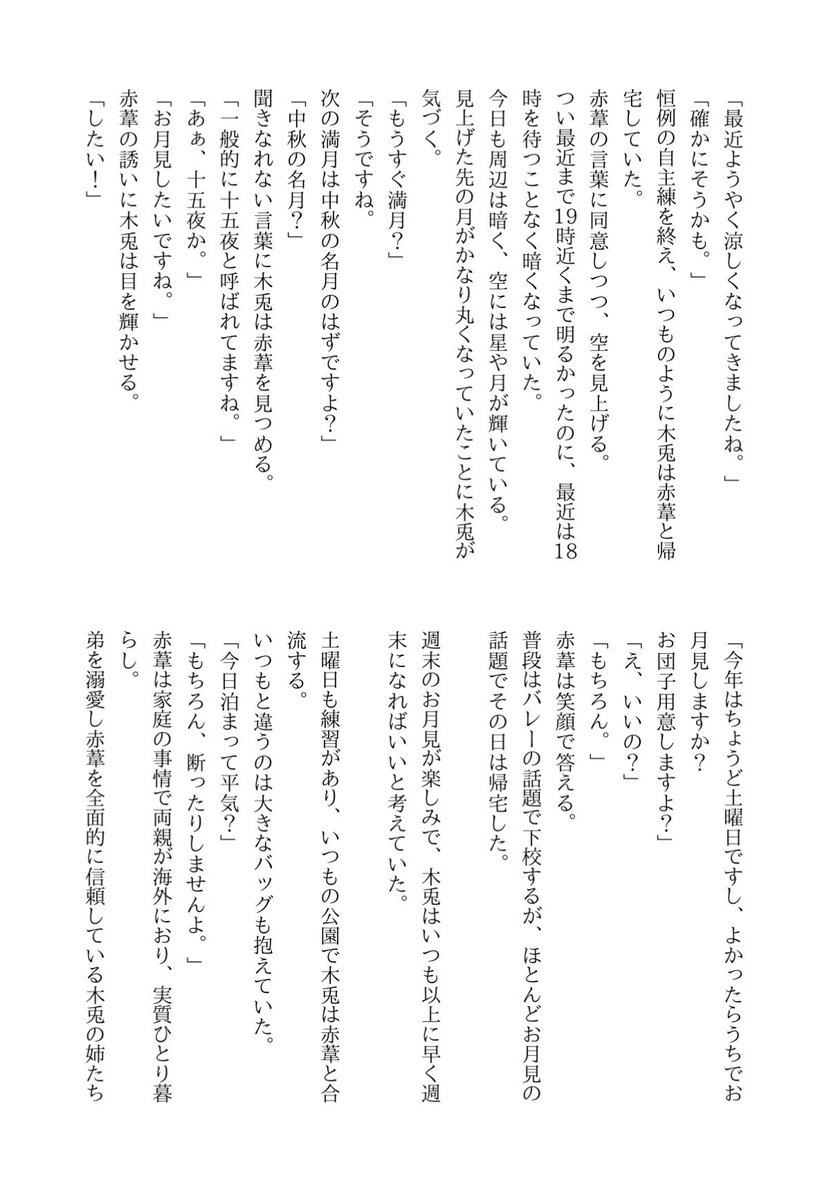 「最近ようやく涼しくなってきましたね。」
「確かにそうかも。」
恒例の自主練を終え、いつものように木兎は赤葦と帰
宅していた。
赤葦の言葉に同意しつつ、空を見上げる。
つい最近まで19時近くまで明るかったのに、最近は18
時を待つことなく暗くなっていた。
今日も周辺は暗く、空には星や月が輝いている。
見上げた先の月がかなり丸くなっていたことに木兎が
気づく。
「もうすぐ満月？」
「そうですね。
次の満月は中秋の名月のはずですよ？」
「中秋の名月？」
聞きなれない言葉に木兎は赤葦を見つめる。
「一般的に十五夜と呼ばれてますね。」
「あぁ、十五夜か。」
「お月見したいですね。」
赤葦の誘いに木兎は目を輝かせる。
「したい！」
「今年はちょうど土曜日ですし、よかったらうちでお
月見しますか？
お団子用意しますよ？」
「え、いいの？」
「もちろん。」
赤葦は笑顔で答える。
普段はバレーの話題で下校するが、ほとんどお月見の
話題でその日は帰宅した。
週末のお月見が楽しみで、木兎はいつも以上に早く週
末になればいいと考えていた。
土曜日も練習があり、いつもの公園で木兎は赤葦と合
流する。
いつもと違うのは大きなバッグも抱えていた。
「今日泊まって平気？」
「もちろん、断ったりしませんよ。」
赤葦は家庭の事情で両親が海外におり、実質ひとり暮
らし。
弟を溺愛し赤葦を全面的に信頼している木兎の姉たち